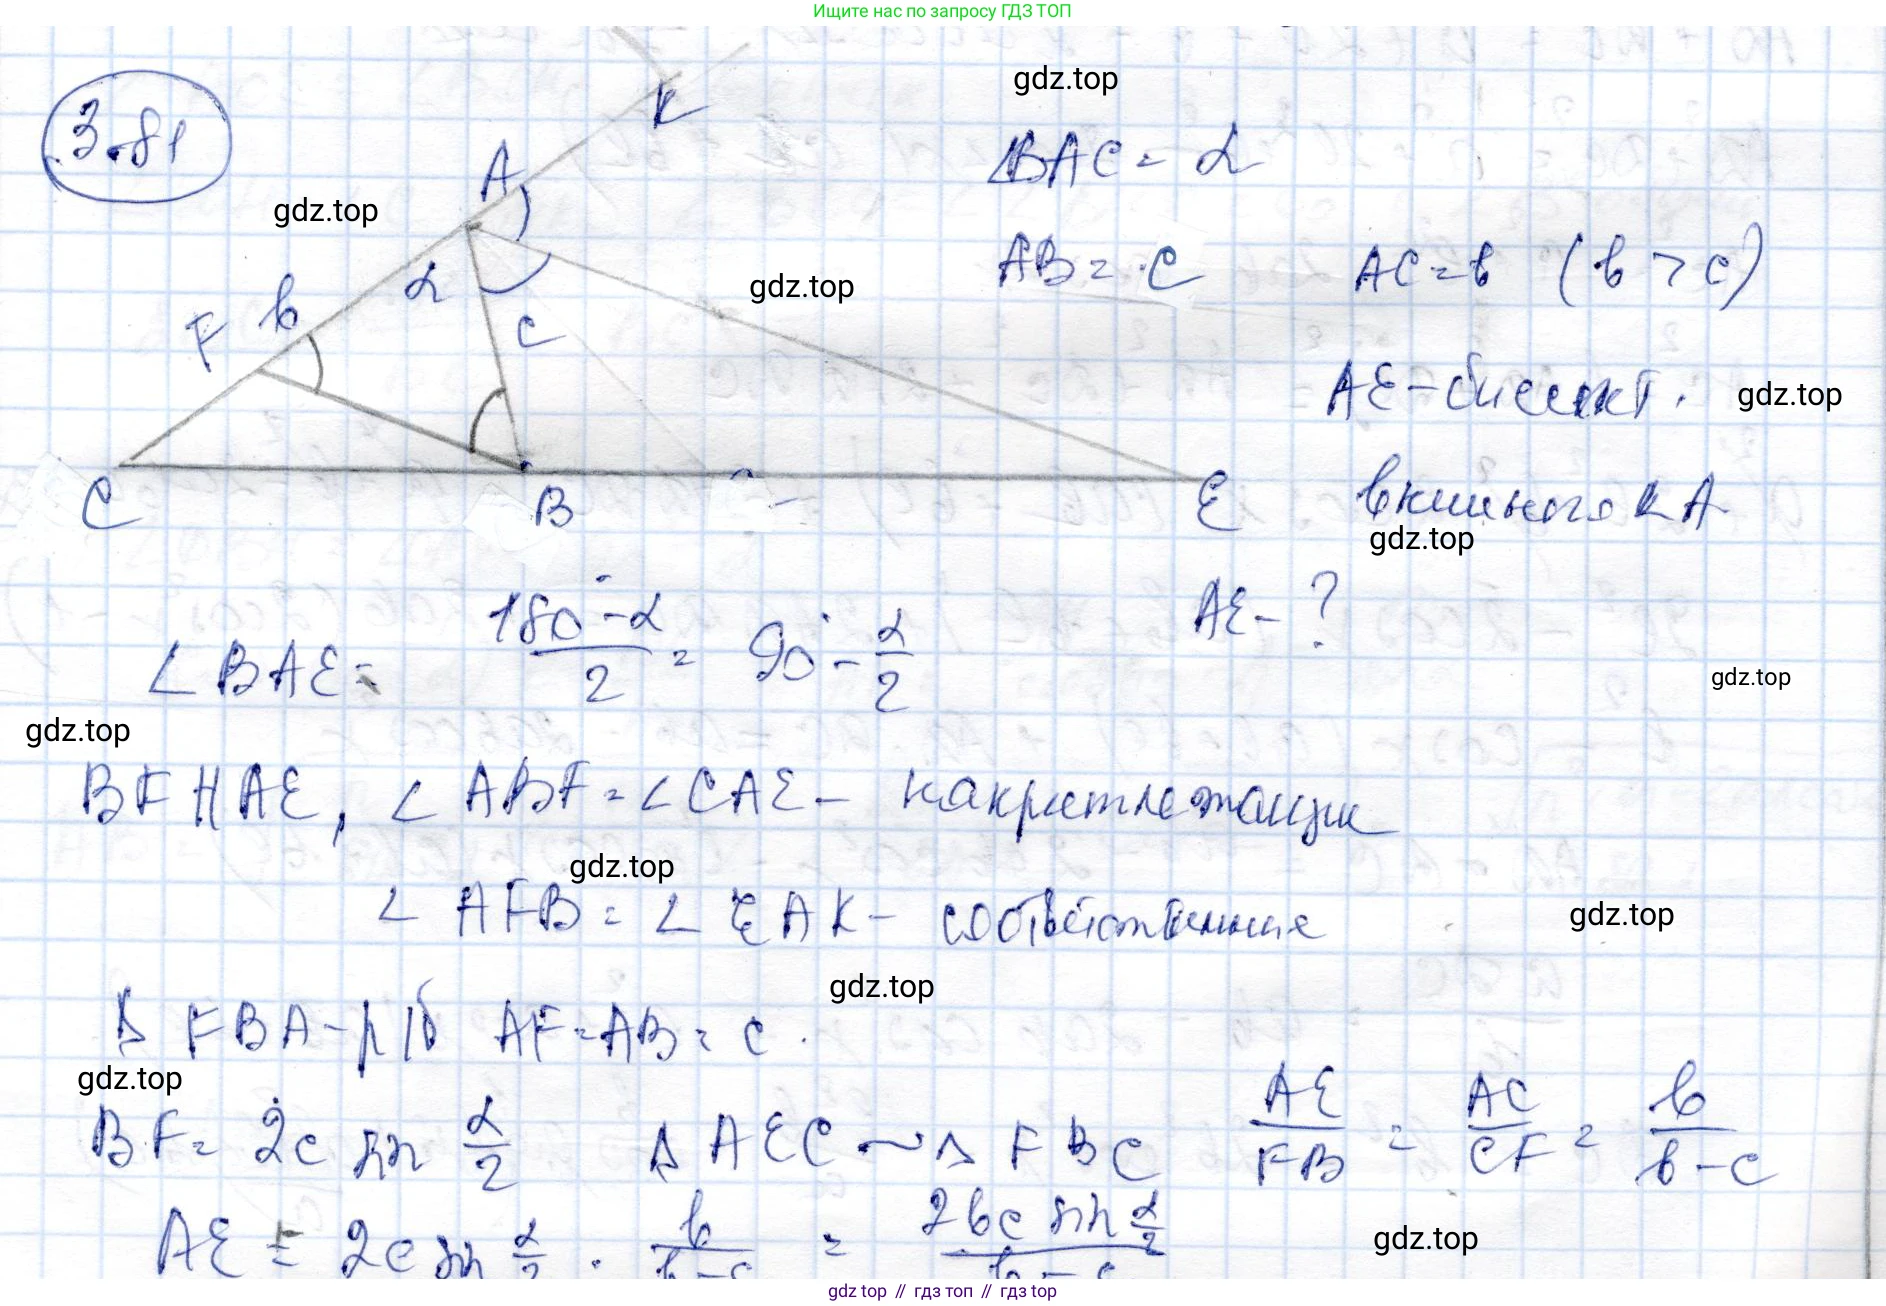 Ищите нас по запросу ГДЗ ТОП
3.81
gdz.top
K
A
∠BAC = α
gdz.top
AB = c AC = b (b > c)
α
b
gdz.top
F
c
AE – биссект.
gdz.top
C
B
E
внешнего ∠A
gdz.top
AE – ?
∠BAE = (180° – α)/2 = 90° – α/2
gdz.top
gdz.top
BF || AE, ∠ABF = ∠CAE – накрестлежащие
gdz.top
∠AFB = ∠EAK – соответственные
gdz.top
gdz.top
Δ FBA – р/б AF = AB = c.
gdz.top
BF = 2c sin α/2 Δ AEC ~ Δ FBC AE/FB = AC/CF = b/(b – c)
AE = 2c sin α/2 · b/(b – c) = 2bc sin α/2 / (b – c)
gdz.top
gdz.top // гдз топ // гдз top